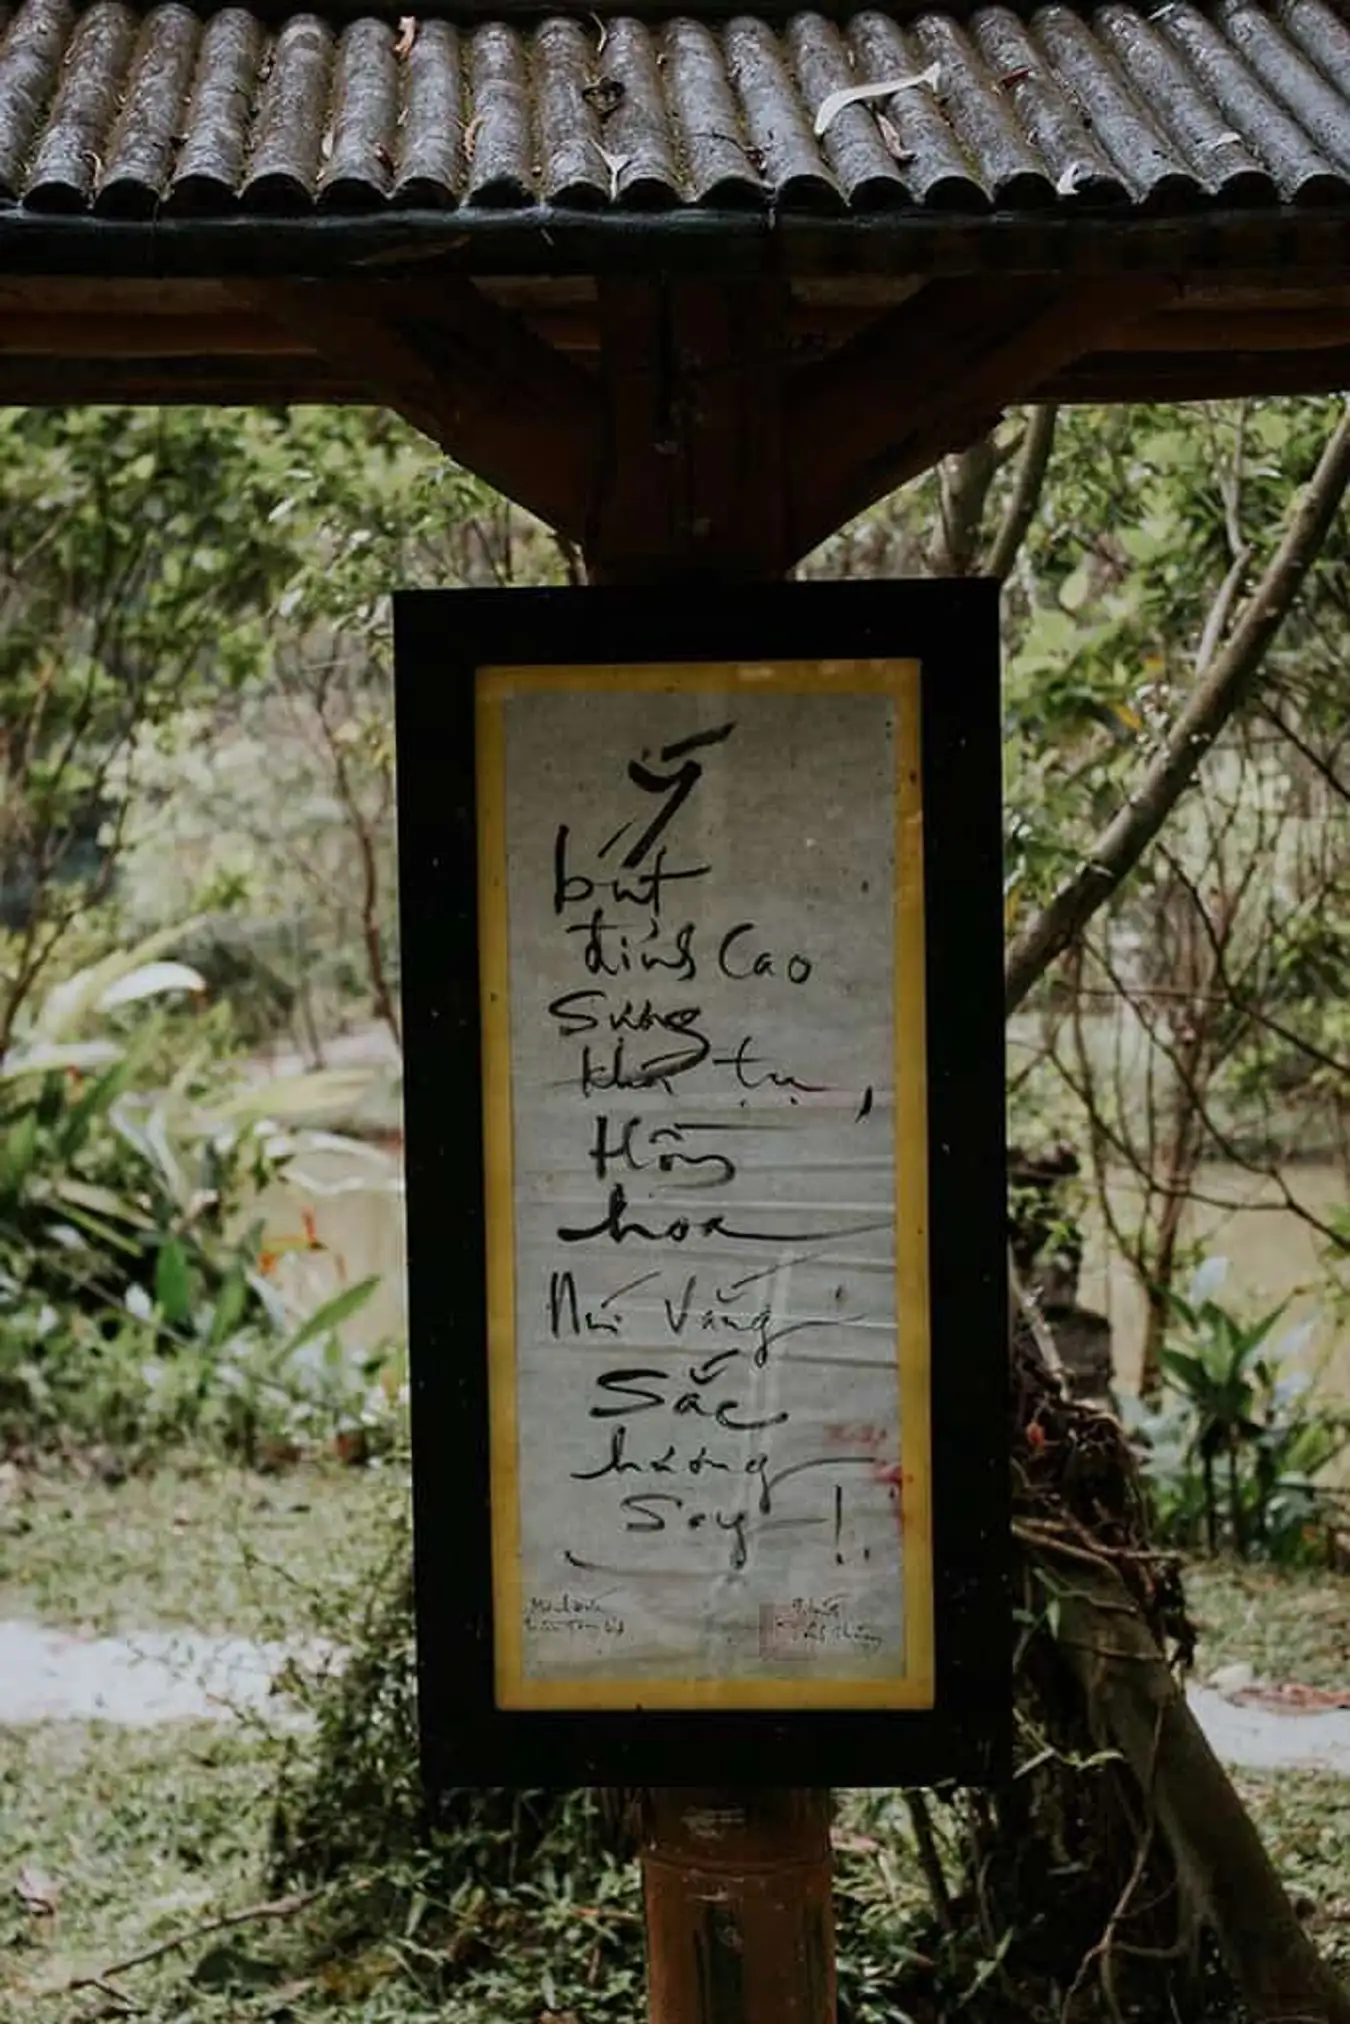 Ý
bút
đỉnh Cao
Sương
khói tụ,
Hồng
hoa
Núi Vắng
Sắc
hương
Say!